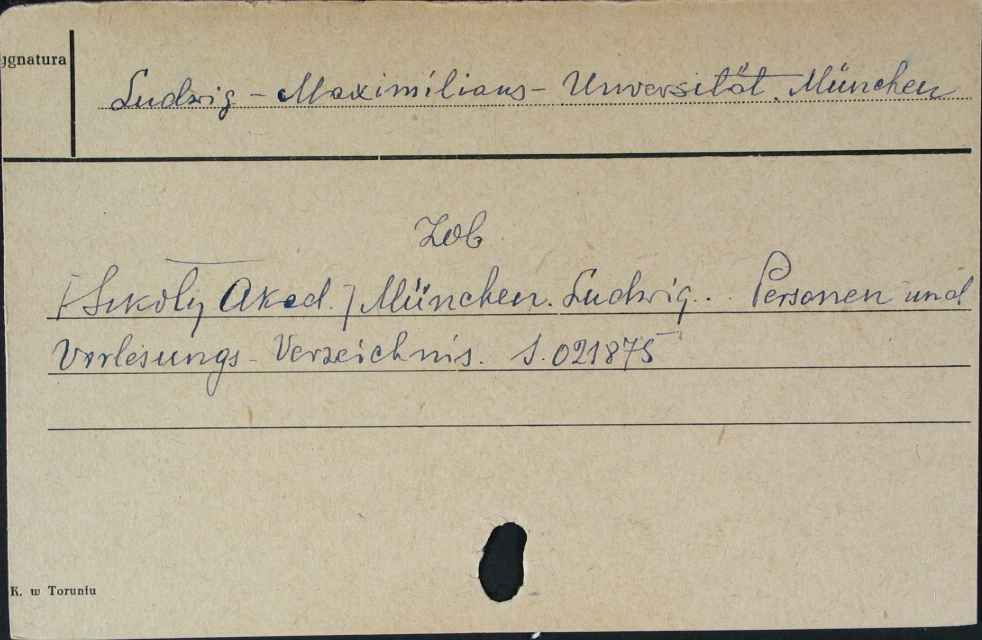 ygnatura
Ludwig - Maximilians - Unversität. München
Zob
[Szkoły Akad.] München. Ludwig... Personen und
Vorlesungs- Verzeichnis. S.021875
K. w Toruniu